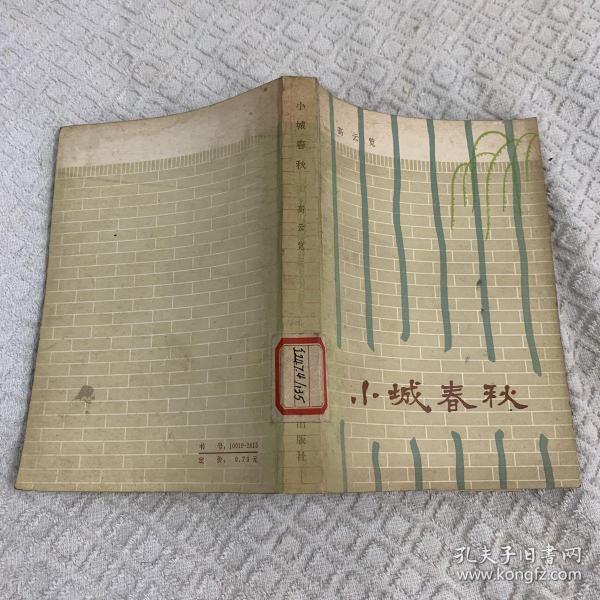 高云览
小城春秋
小城春秋
高云览
I247.4/135
出版社
书号:10019-2815
定价:0.73元
孔夫子旧书网
www.kongfz.com